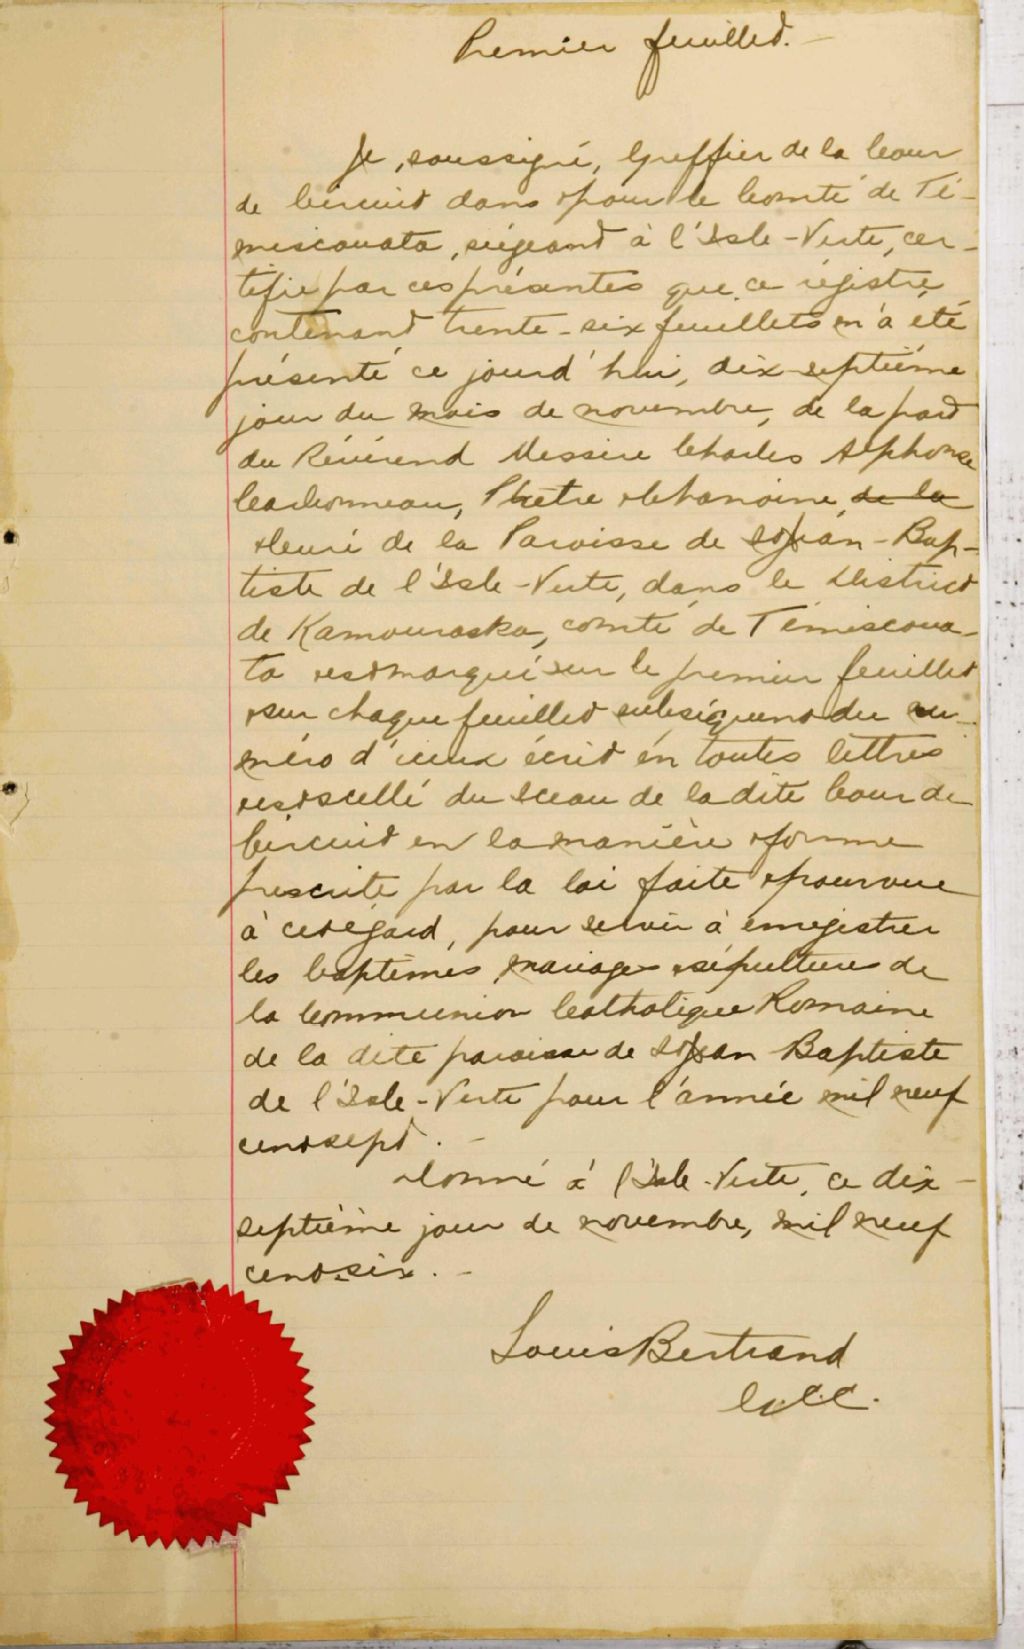 Premier feuillet. -
Je, soussigné, Greffier de la Cour
de Circuit dans & pour le Comté de Té-
miscouata, siégeant à l'Isle-Verte, cer-
tifie par ces présentes que ce régistre,
contenant trente-six feuillets m'a été
présenté ce jourd'hui, dix-septième
jour du mois de novembre, de la part
du Révérend Messire Charles Alphonse
Carbonneau, Ptêtre & Chanoine, de la
& Curé de la Paroisse de St Jean-Bap-
tiste de l'Isle-Verte, dans le District
de Kamouraska, comté de Témiscoua-
ta & est marqué sur le premier feuillet
& sur chaque feuillet subséquent du nu-
méro d'iceux écrit en toutes lettres
& est scellé du sceau de la dite Cour de
Circuit en la manière & forme
prescrite par la loi faite & pourvue
à cet égard, pour servir à enregistrer
les baptêmes, mariages & sépultures de
la Communion Catholique Romaine
de la dite paroisse de St Jean Baptiste
de l'Isle-Verte pour l'année mil neuf
cent sept. -
Donné à l'Isle-Verte, ce dix-
septième jour de novembre, mil neuf
cent-six. -
Louis Bertrand
G.C.C.